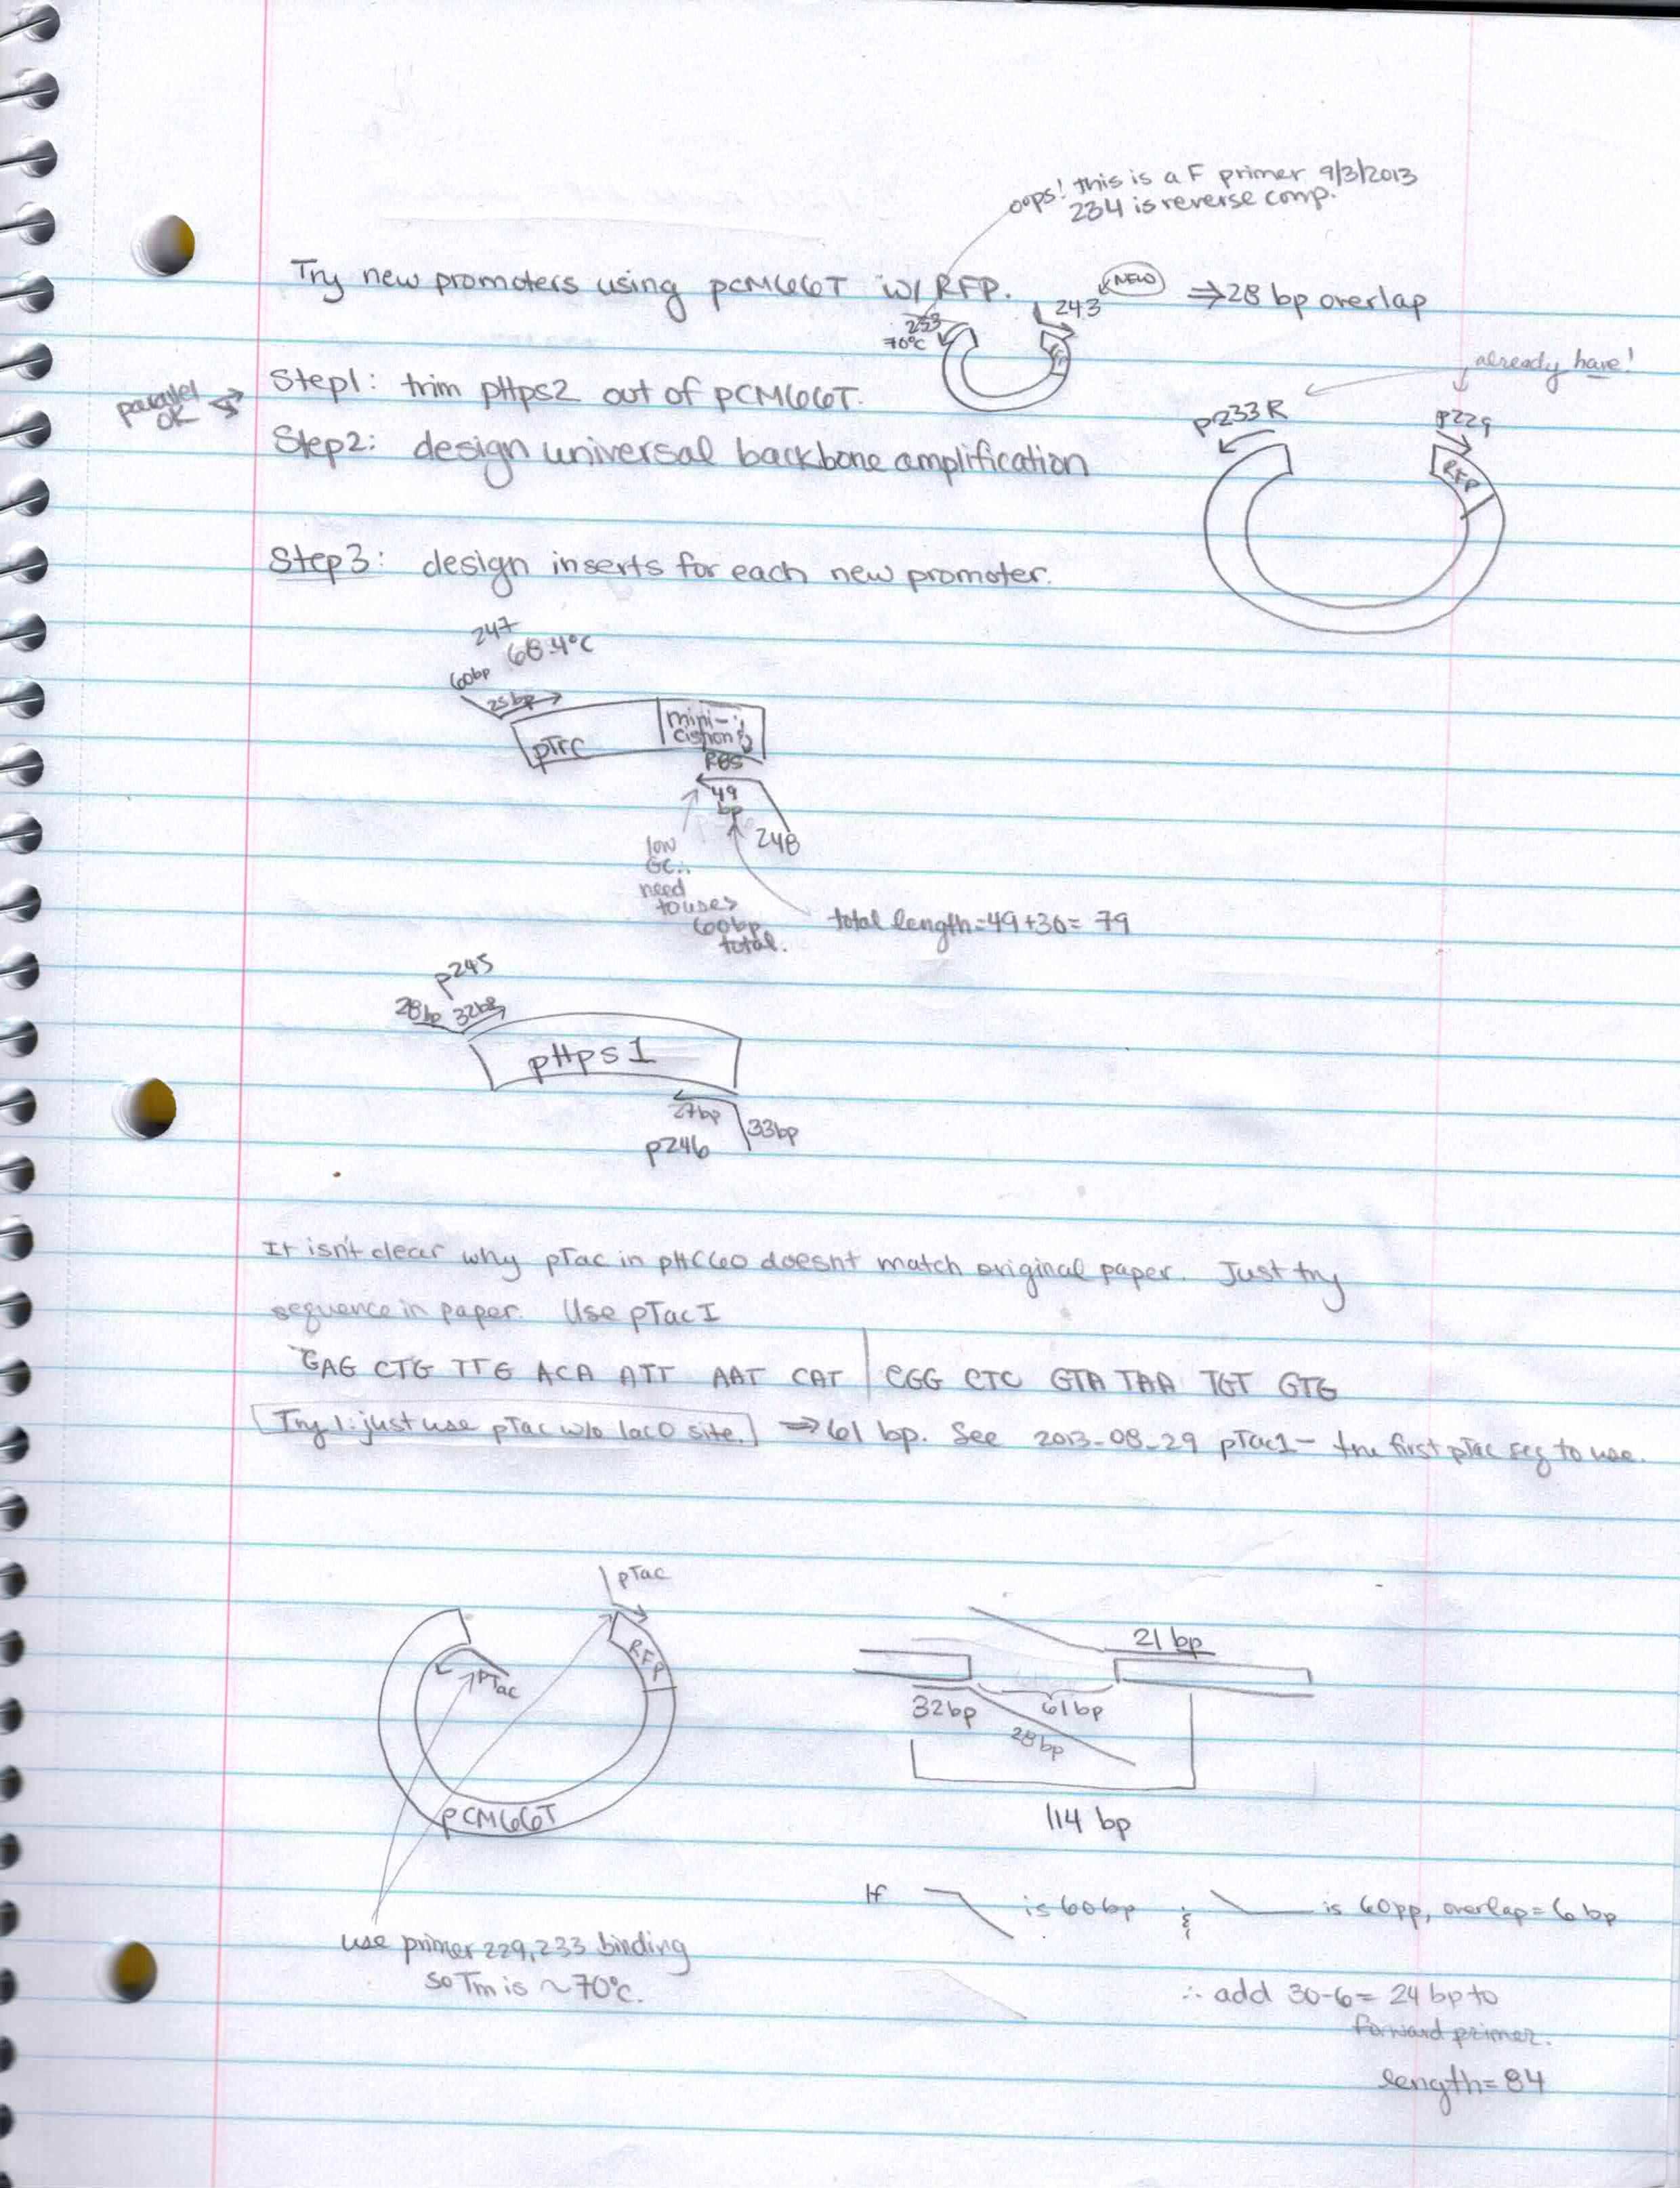 oops! this is a F primer 9/3/2013
234 is reverse comp.
Try new promoters using pCM66T w/ RFP.
NEW
243
⇒ 28 bp overlap
233
70°C
already have!
parallel
OK
Step1: trim pHps2 out of pCM66T.
p233 R
p229
RFP
Step2: design universal backbone amplification
Step3: design inserts for each new promoter.
247
68.4°C
60bp
25bp
pTrc
mini-
cistron
RBS
49
bp
248
low
GC ∴
need
to use >
60bp
total.
total length = 49+30 = 79
p245
28bp 32bp
pHps1
27bp
33bp
p246
It isn't clear why pTac in pHC60 doesnt match original paper. Just try
sequence in paper. Use pTac I
GAG CTG TTG ACA ATT AAT CAT | CGG CTC GTA TAA TGT GTG
Try 1: just use pTac w/o lacO site. ⇒ 61 bp. See 2013-08-29 pTac1 - the first pTac seq to use.
pTac
RFP
pTac
pCM66T
use primer 229, 233 binding
so Tm is ~70°C.
21 bp
32bp
61bp
28bp
114 bp
If is 60bp & is 60pp, overlap = 6 bp
∴ add 30-6 = 24 bp to
forward primer.
length = 84